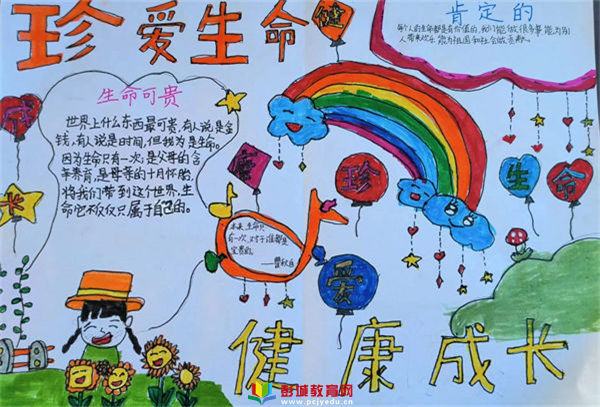 珍爱生命
健
肯定的
每个人的生命都是有价值的,我们能做很多事,能为别
人带来欢乐,能为祖国和社会做贡献。
成
长
生命可贵
世界上什么东西最可贵,有人说是金
钱,有人说是时间,但我认为是生命。
因为生命只有一次;是父母的含
辛养育,是母等的十月怀胎,
将我们带到这个世界,生
命它不仅仅只属于自己的。
康
珍
生
命
爱
本来,生命只
有一次,对于谁都是
宝贵的。
——瞿秋白
健康成长
彭城教育网
www.pcjyedu.cn